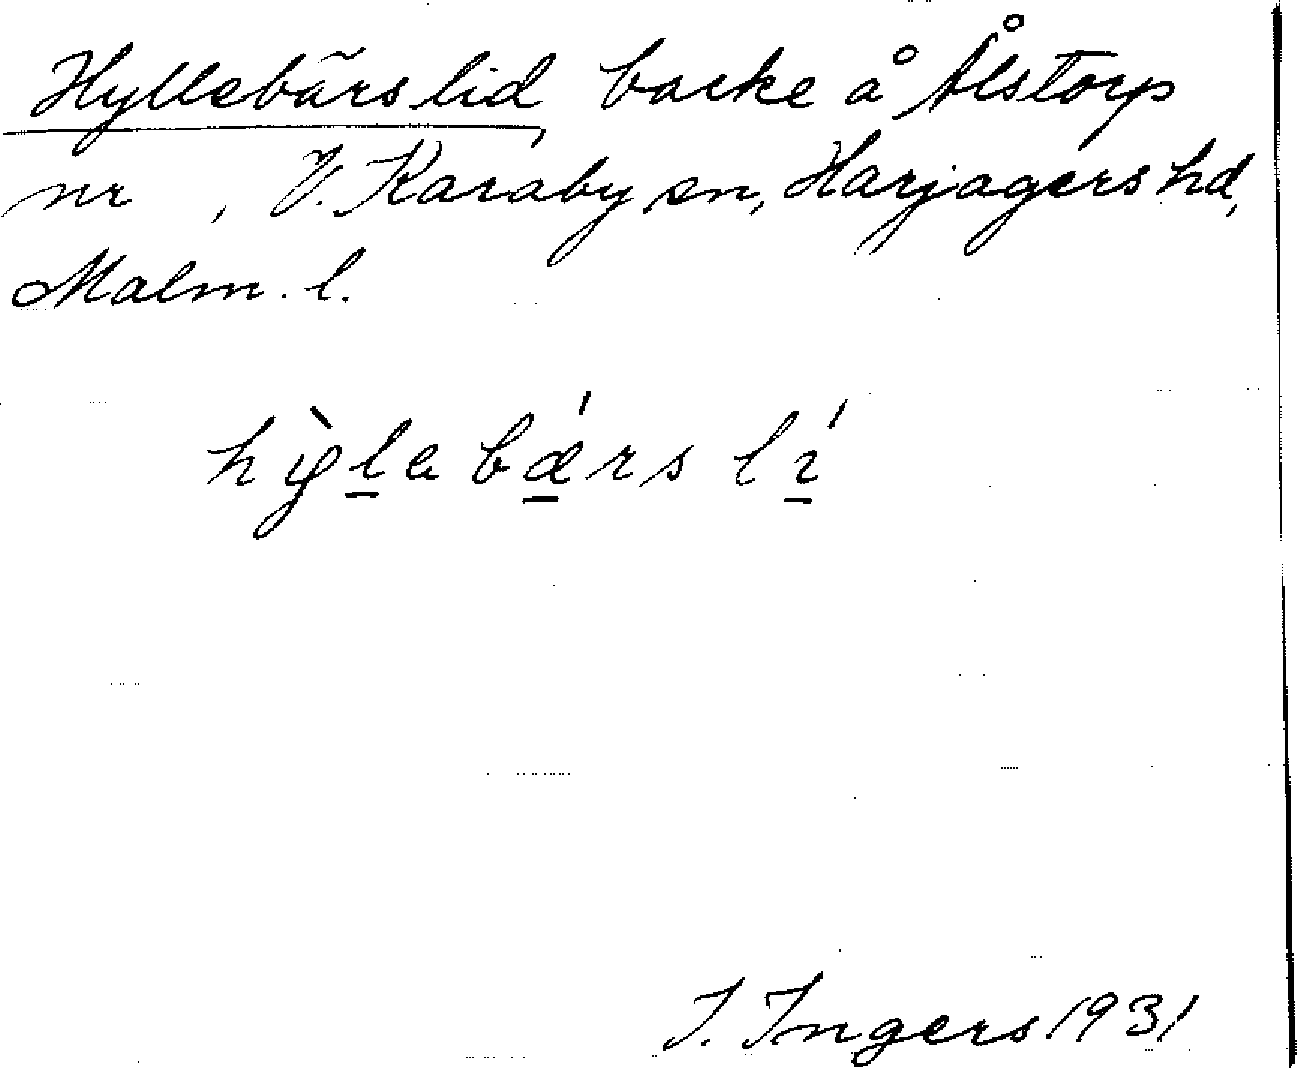 Hyllebärs lid, backe å Ålstorp
nr , V. Karaby sn, Harjagers hd,
Malm. l.
hỳlebǽrs lí
I. Ingers 1931